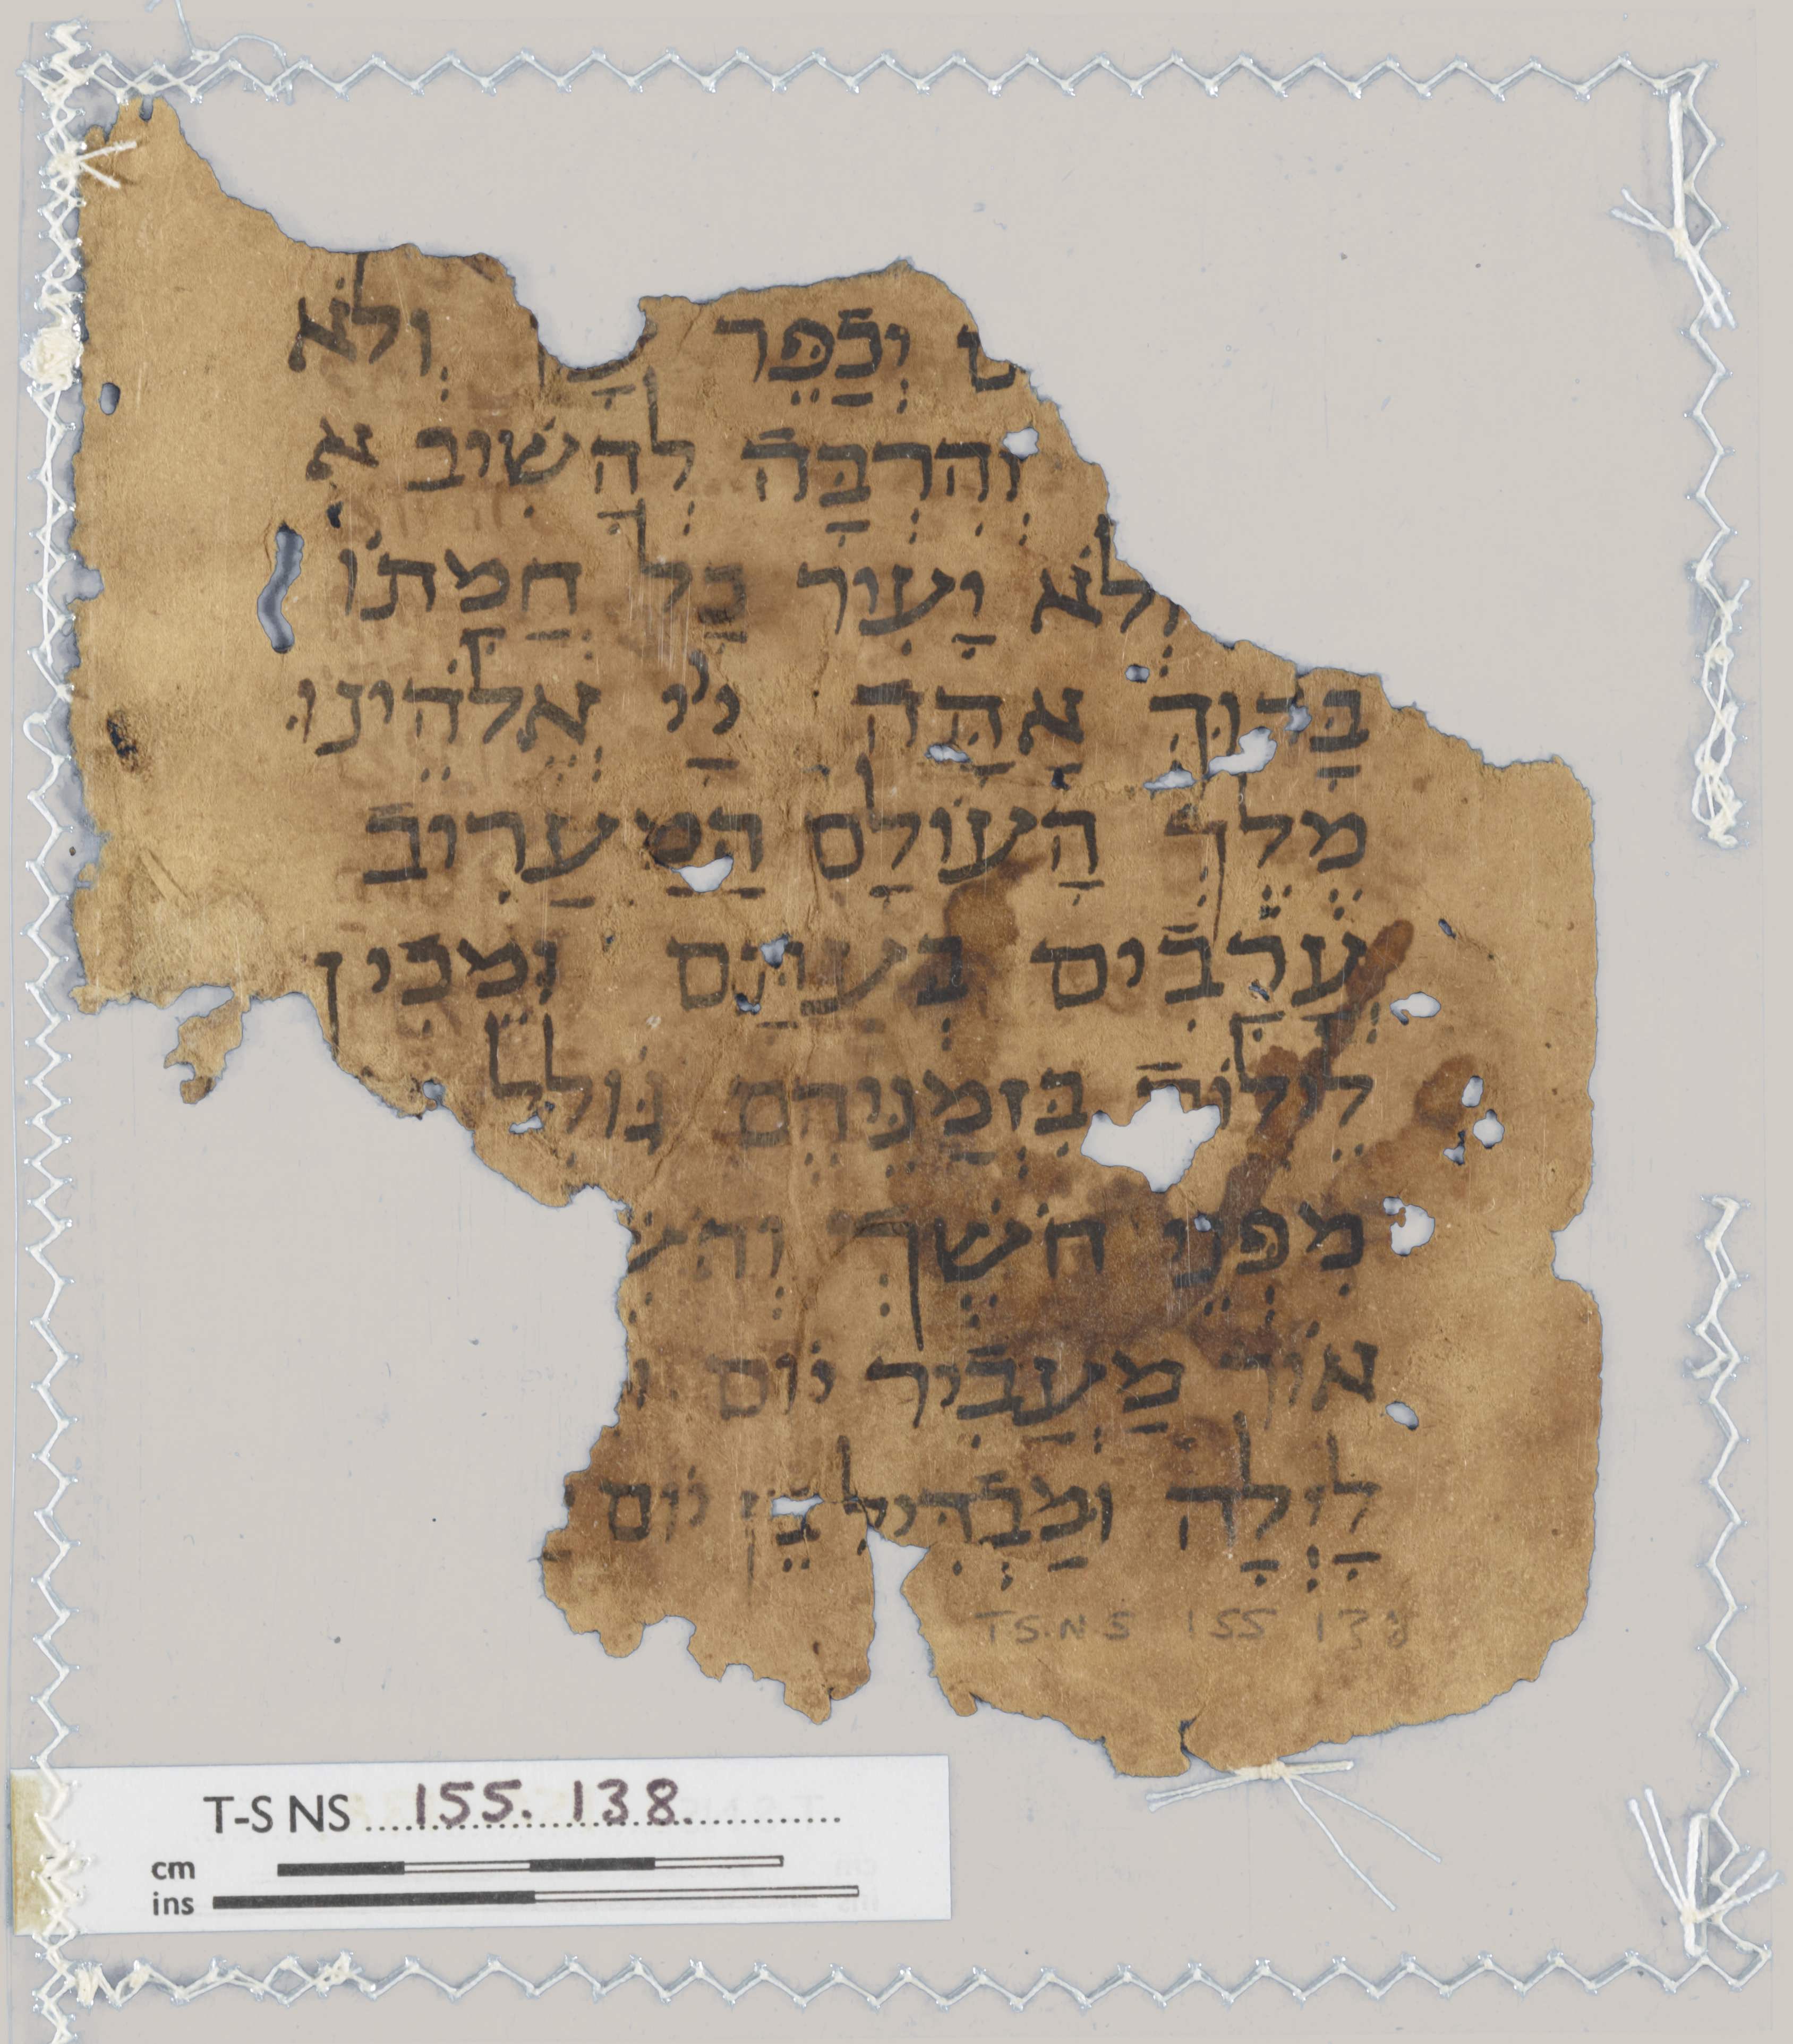 יְכַפֵּר עָוֹן וְלֹא
וְהִרְבָּה לְהָשִׁיב א
וְלֹא יָעִיר כָּל חֲמָתוֹ
בָּרוּךְ אַתָּה יְיָ אֱלֹהֵינוּ
מֶלֶךְ הָעוֹלָם הַמַּעֲרִיב
עֲרָבִים בְּעִתָּם וּמֵכִין
בִּזְמַנֵּיהֶם גּוֹלֵל
מִפְּנֵי חֹשֶׁךְ וְחֹשֶׁ
אוֹר מַעֲבִיר יוֹם ו
לַיְלָה וּמַבְדִּיל בֵּין יוֹם
TS.NS 155 138
T-S NS 155. 138.
cm
ins